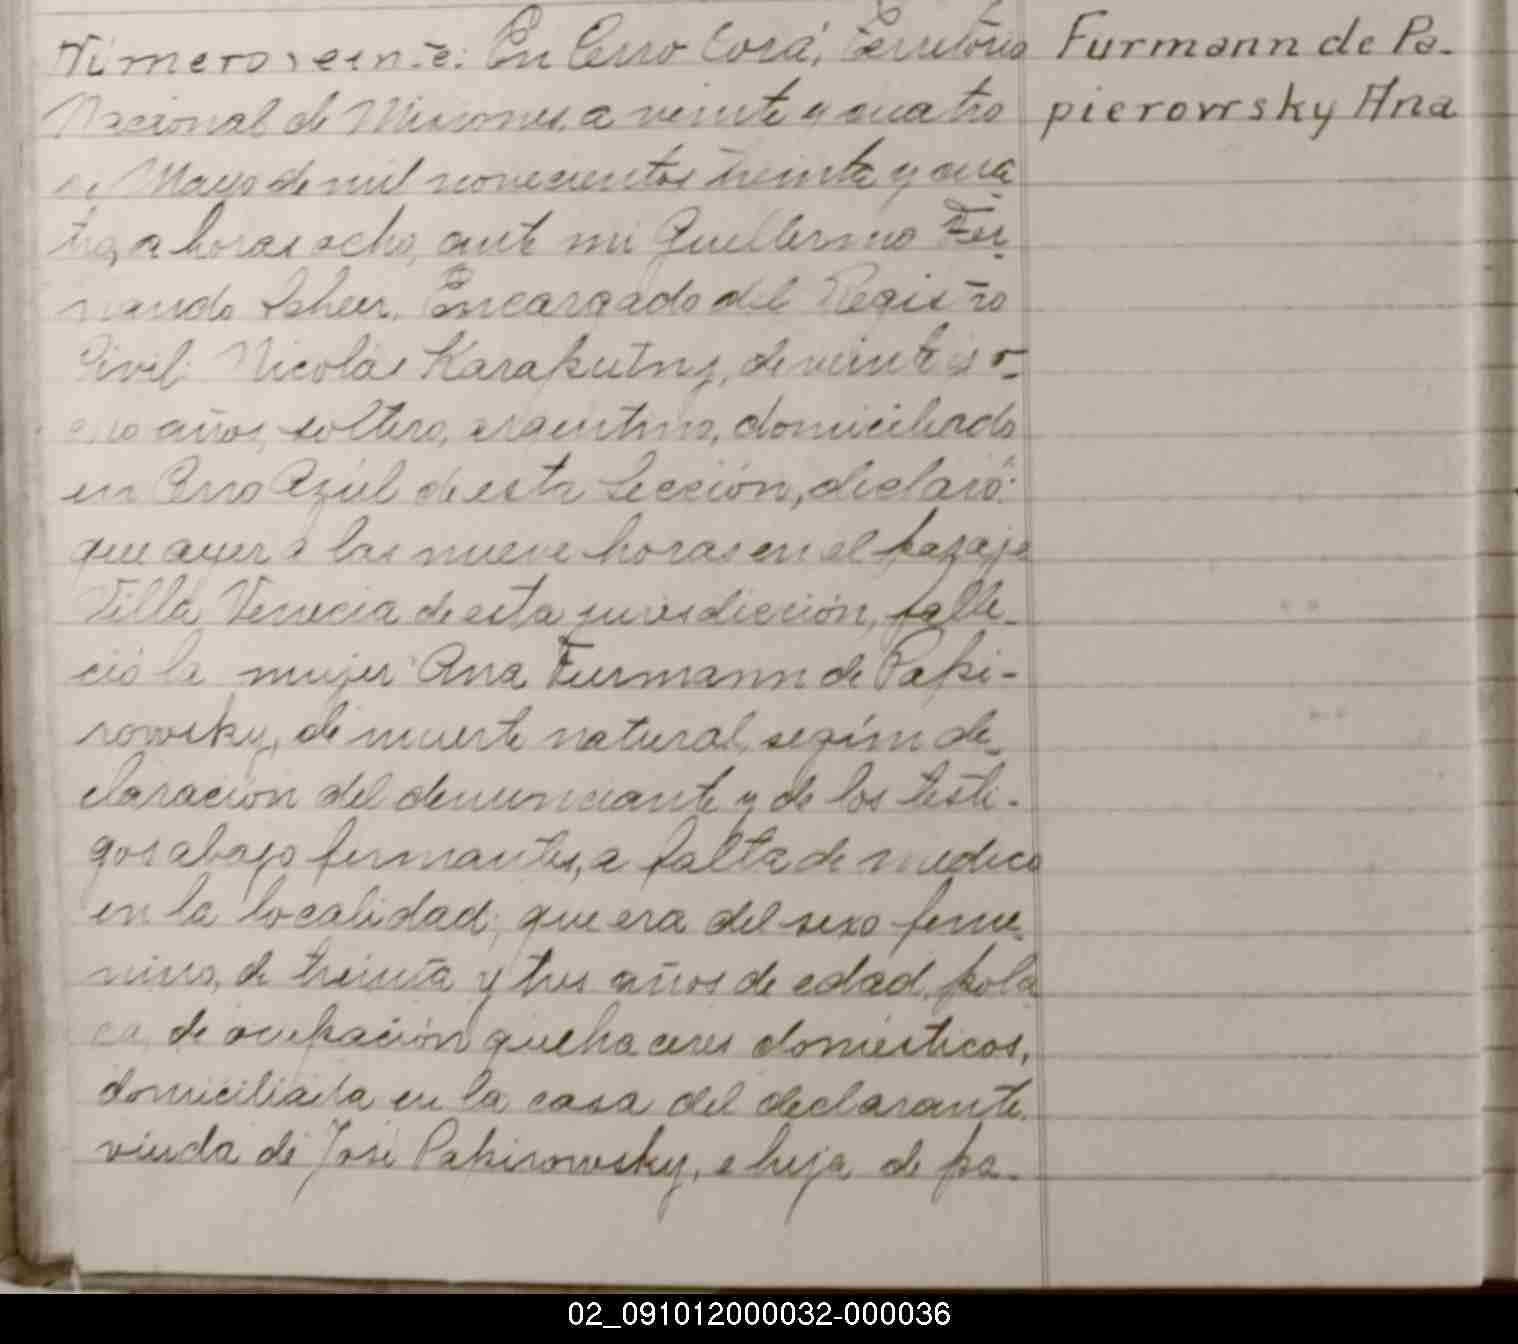 Número veinte: En Cerro Corá, Territorio
Nacional de Misiones, a veinte y cuatro
de Mayo de mil novecientos treinta y cua
tro, a horas ocho, ante mi Guillermo Fer-
nando Scheer, Encargado del Registro
Civil: Nicolás Karakutny, de veinte y o-
cho años, soltero, argentino, domiciliado
en Cerro Azúl de esta Sección, declaró:
que ayer a las nueve horas en el pazaje
Villa Venecia de esta jurisdicción, falle-
ció la mujer Ana Furmann de Papi-
rowsky, de muerte natural, según de-
claración del denunciante y de los testi-
gos abajo firmantes, a falta de medico
en la localidad; que era del sexo feme-
nino, de treinta y tres años de edad, pola
ca, de ocupación quehaceres domésticos,
domiciliada en la casa del declarante,
viuda de José Papirowsky, e hija de pa-
Furmann de Pa-
pierowsky Ana
02_091012000032-000036